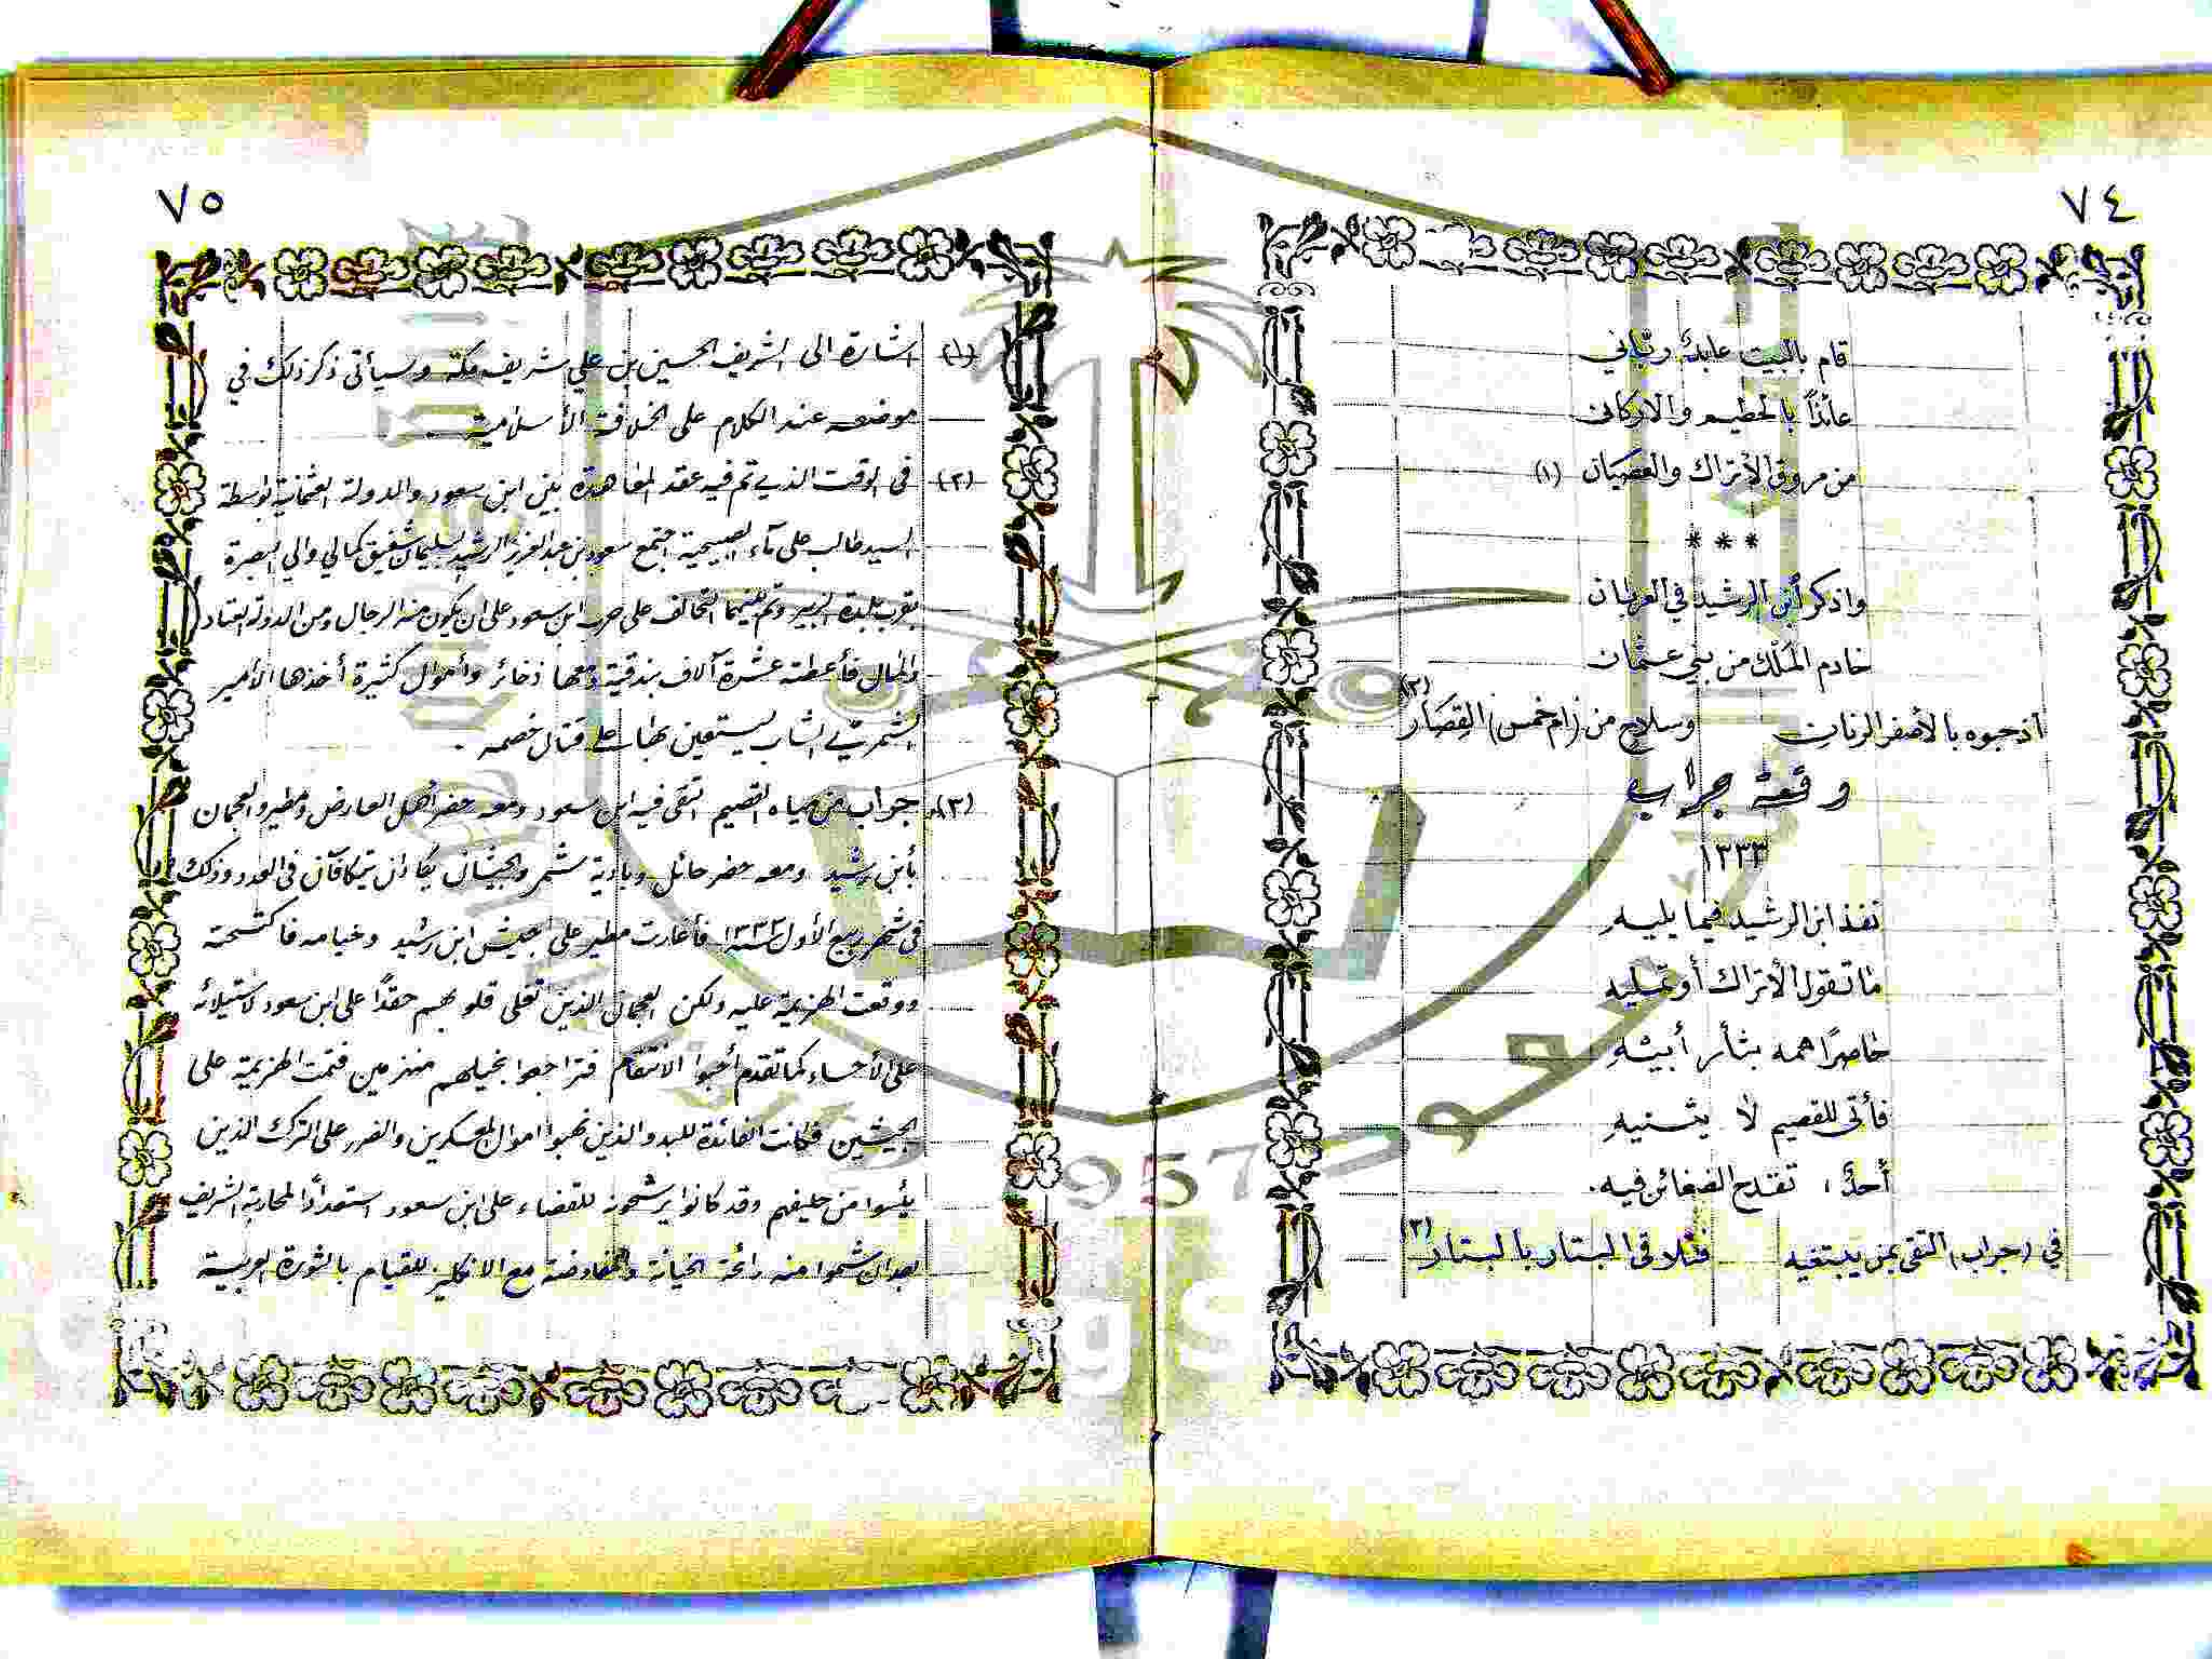 ٧٤
قام بالبيت عابدٌ ربّاني
عائذاً بالحطيم والاركان
من مروق الأتراك والعصيان (١)
***
واذكر أبن الرشيد في العربان
خادم المُلك من بني عثمان
اذ حبوه بالأصفر الرنان وسلاح من (ام خمس) القِصَار (٢)
وقعة جراب
١٣٣٣
نفذ ابن الرشيد فيما يليه
ما تقول الأتراك أو تمليه
حاصراً همه بثأر أبيه
فأتى للقصيم لا يثنيه
أحدٌ، تقدح الضغائن فيه.
في (جراب) التقى بمن يبتغيه فتلاقى البتار بالبتار (٣)
٧٥
(١) اشارة الى الشريف الحسين بن علي شريف مكة وسيأتى ذكر ذلك في
موضعه عند الكلام على الخلافة الأسلامية.
(٢) فى الوقت الذي تم فيه عقد المعاهدة بين ابن سعود والدولة العثمانية بواسطة
السيد طالب على مآء الصبيحية اجتمع سعود بن عبد العزيز الرشيد بسليمان شفيق كمالي والي البصرة
بقرب بلدة الزبير وتم بينهما التحالف على حرب ابن سعود على ان يكون منه الرجال ومن الدولة العتاد
والمال فأعطته عشرة آلاف بندقية ومعها ذخائر وأموال كثيرة أخذها الأمير
الشمري الشاب ليستعين بها على قتال خصمه.
(٣) جراب من مياه القصيم التقى فيه ابن سعود ومعه حضر أهل العارض ومطير والعجمان
بأبن رشيد ومعه حضر حائل وبادية شمر والجيشان يكادان يتكافآن فى العدد وذلك
فى شهر ربيع الأول سنة ١٣٣٣ فأغارت مطير على جيش ابن رشيد وخيامه فاكتسحته
ووقعت الهزيمة عليه ولكن العجمان الذين تغلى قلوبهم حقداً على ابن سعود لاستيلائه
على الأحساء كما تقدم أحبوا الانتقام فتراجعوا بخيلهم منهزمين فتمت الهزيمة على
الجيشين فكانت الفائدة للبدو الذين نهبوا اموال المعسكرين والضرر على الترك الذين
يئسوا من حليفهم وقد كانوا يرشحونه للقضاء على ابن سعود استعداداً لمحاربة الشريف
بعد ان شموا منه رائحة الخيانة والمفاوضة مع الانكليز للقيام بالثورة العربية
1957